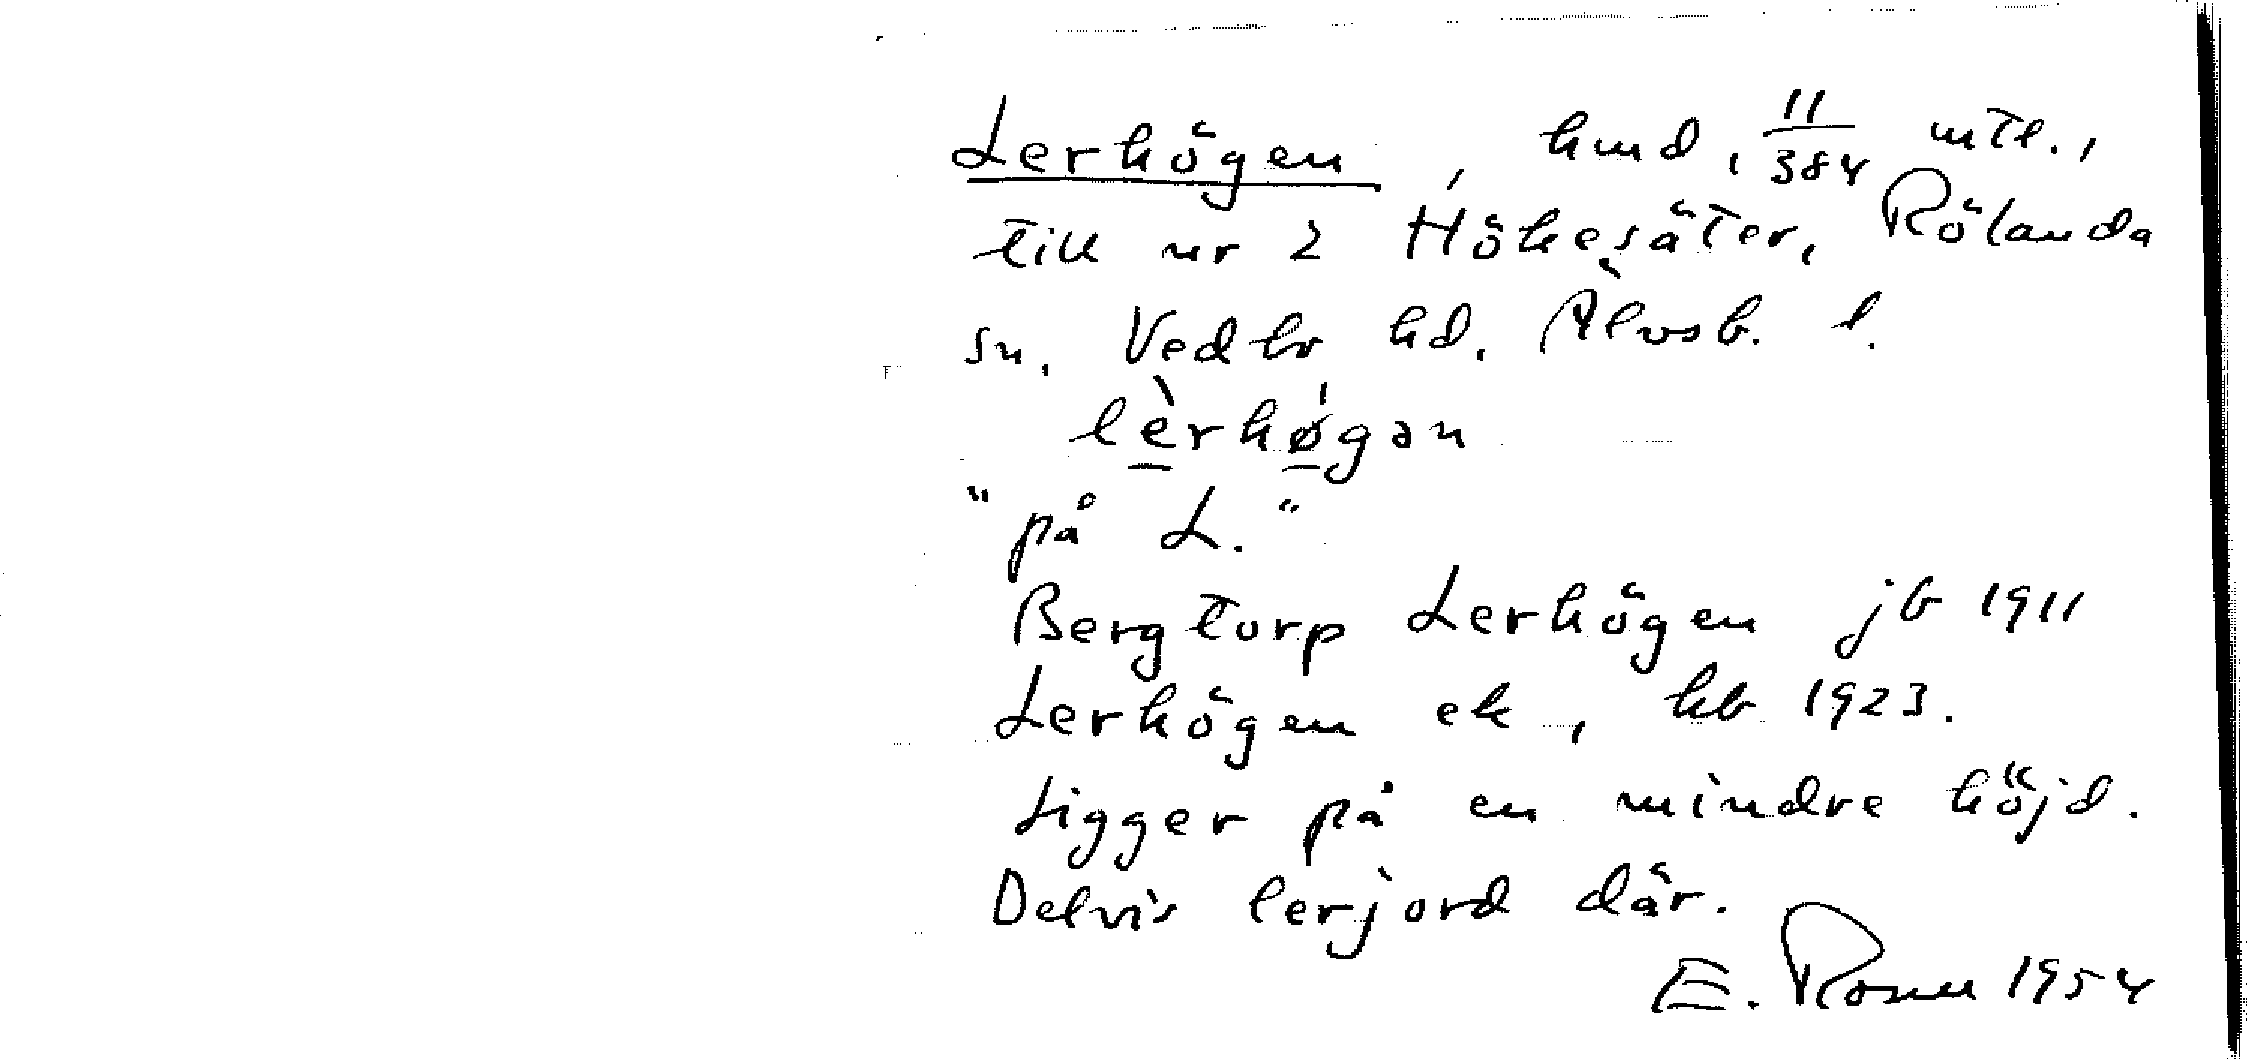 Lerhögen, hmd, 11/384 mtl.,
till nr 2 Hökesäter, Rölanda
sn, Vedbo hd. Älvsb. l.
lèrhǿgən
"på L."
Bergtorp Lerhögen jb 1911
Lerhögen ek, kb 1923.
Ligger på en mindre höjd.
Delvis lerjord där.
E. 1954